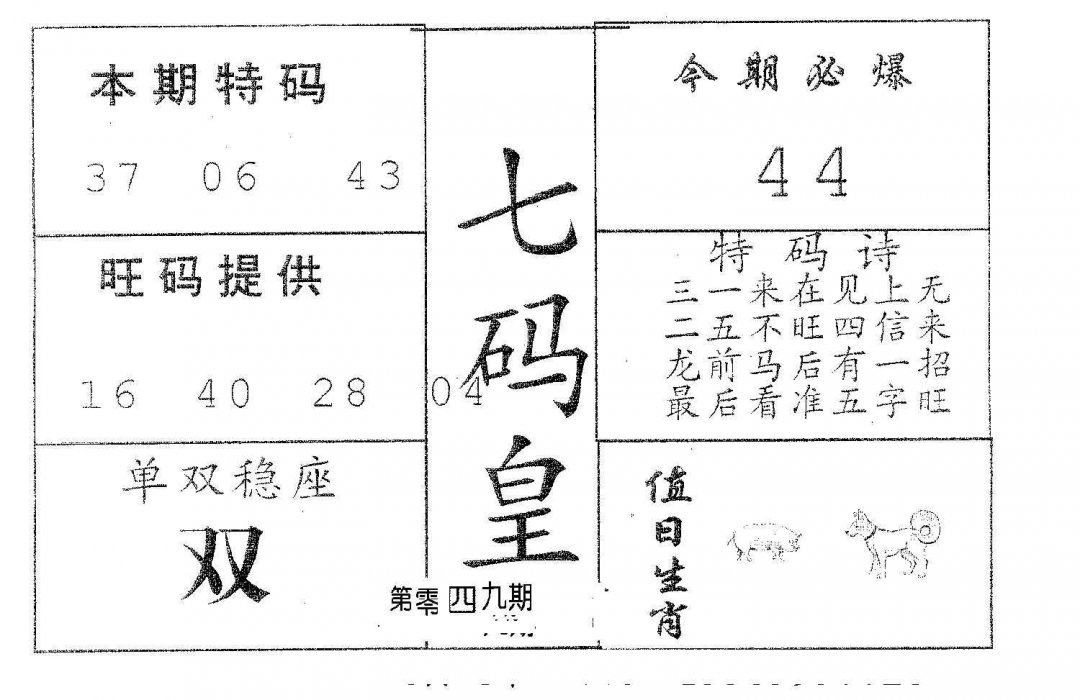 本期特码
37 06 43
旺码提供
16 40 28 04
单双稳座
双
七码皇
第零四九期
今期必爆
44
特码诗
三一来在见上无
二五不旺四信来
龙前马后有一招
最后看准五字旺
值日生肖